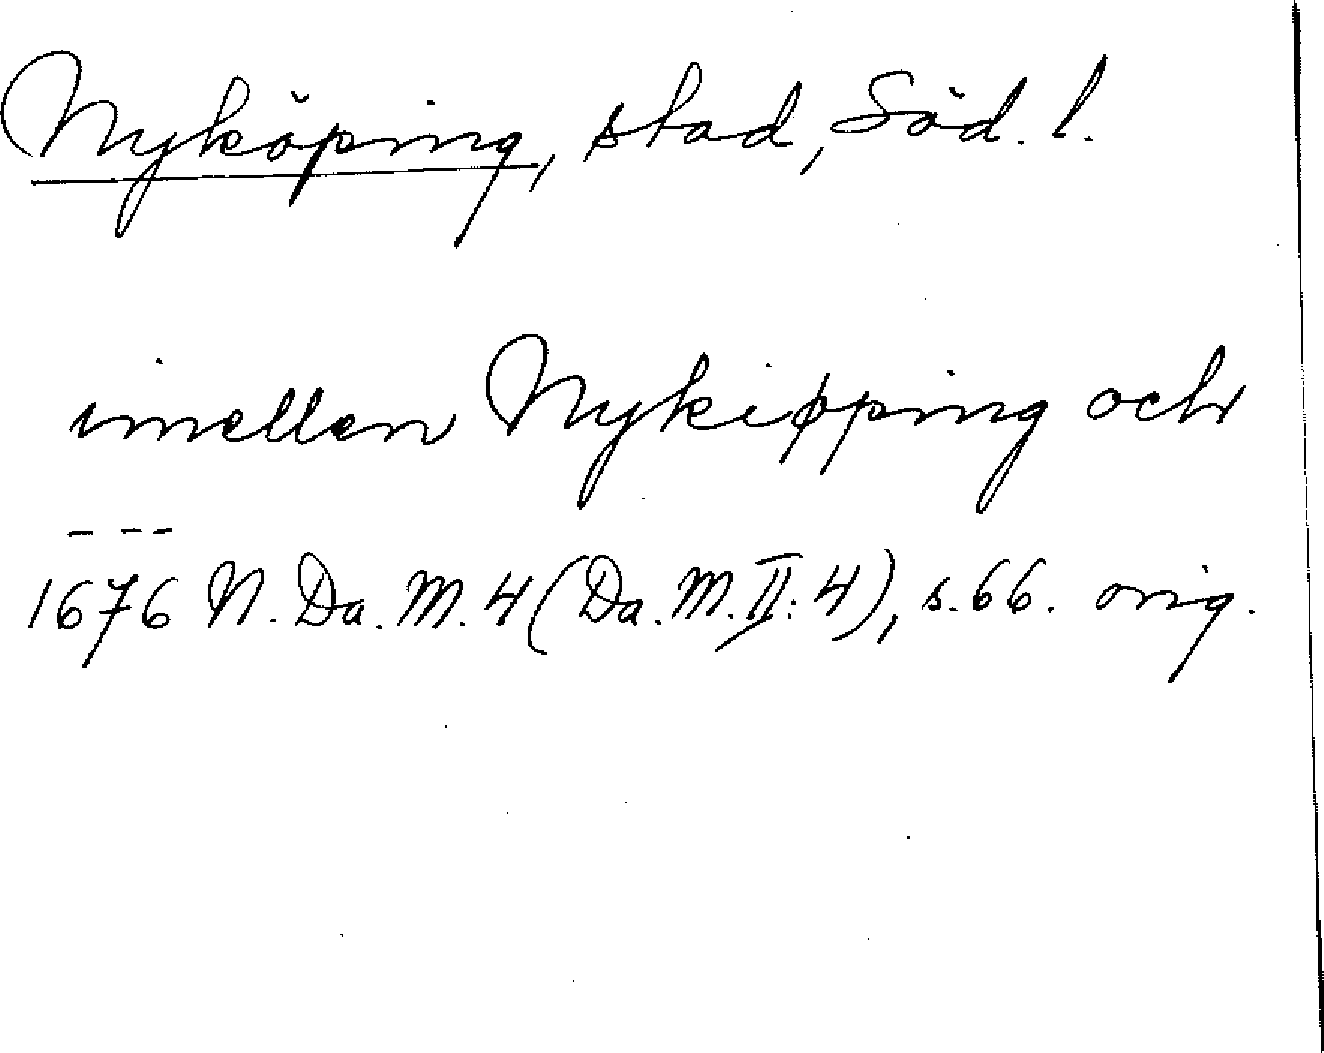 Nyköping, stad, Söd. l.
imellen Nykipping och
- - -
1676 N. Da. M. 4 (Da. M. II: 4), s. 66. orig.